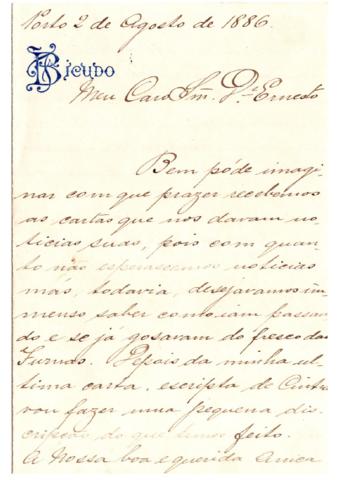 Porto 2 de Agosto de 1886.
BICUDO
Meu Caro Snr. Dr. Ernesto
Bem póde imagi-
nar com que prazer recebemos
as cartas que nos davam no-
ticias suas, pois com quan-
to não esperassemos noticias
más, todavia, desejavamos im-
menso saber como iam passan-
do e se já gosavam do fresco das
Furnas. Depois da minha ul-
tima carta, escripta de Cintra
vou fazer uma pequena dis-
cripção do que temos feito.
A Nossa boa e querida Amica